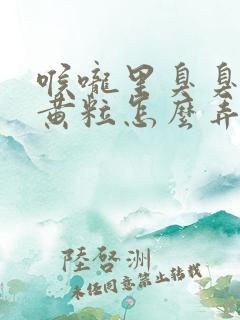 喉嚨里臭臭
黃粒怎麼弄
陸啓洲
未经同意禁止转载